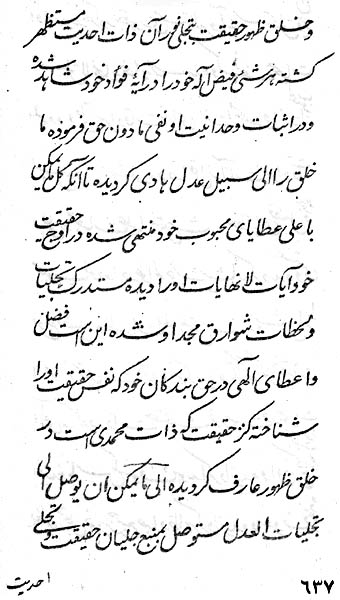 و خلق ظهور حقیقت بتجلی نور آن ذات احدیت مستظهر
کشته هر شیئی فیض اله خود را در آیهٔ فؤاد خود شاهد شده
و در اثبات وحدانیت او نفی ما دون حق فرموده ما
خلق را الی سبیل عدل هادی کردیده تا آنکه کل ما یمکن
با علی عطایای محبوب خود منتهی شده در اوج حقیقت
خود آیات لا نهایات او را دیده مستدرک تجلیات
و لحظات شوارق مجد او شده این است فضل
و اعطای الهی در حق بندکان خود که نفس حقیقت او را
شناخته کز حقیقت که ذات محمدی است در
خلق ظهور عارف کردیده الی ما یمکن ان یوصل الی
تجلیات العدل مستوصل بمنبع جلیان حقیقت و تجلی
احدیت
۶۳۷